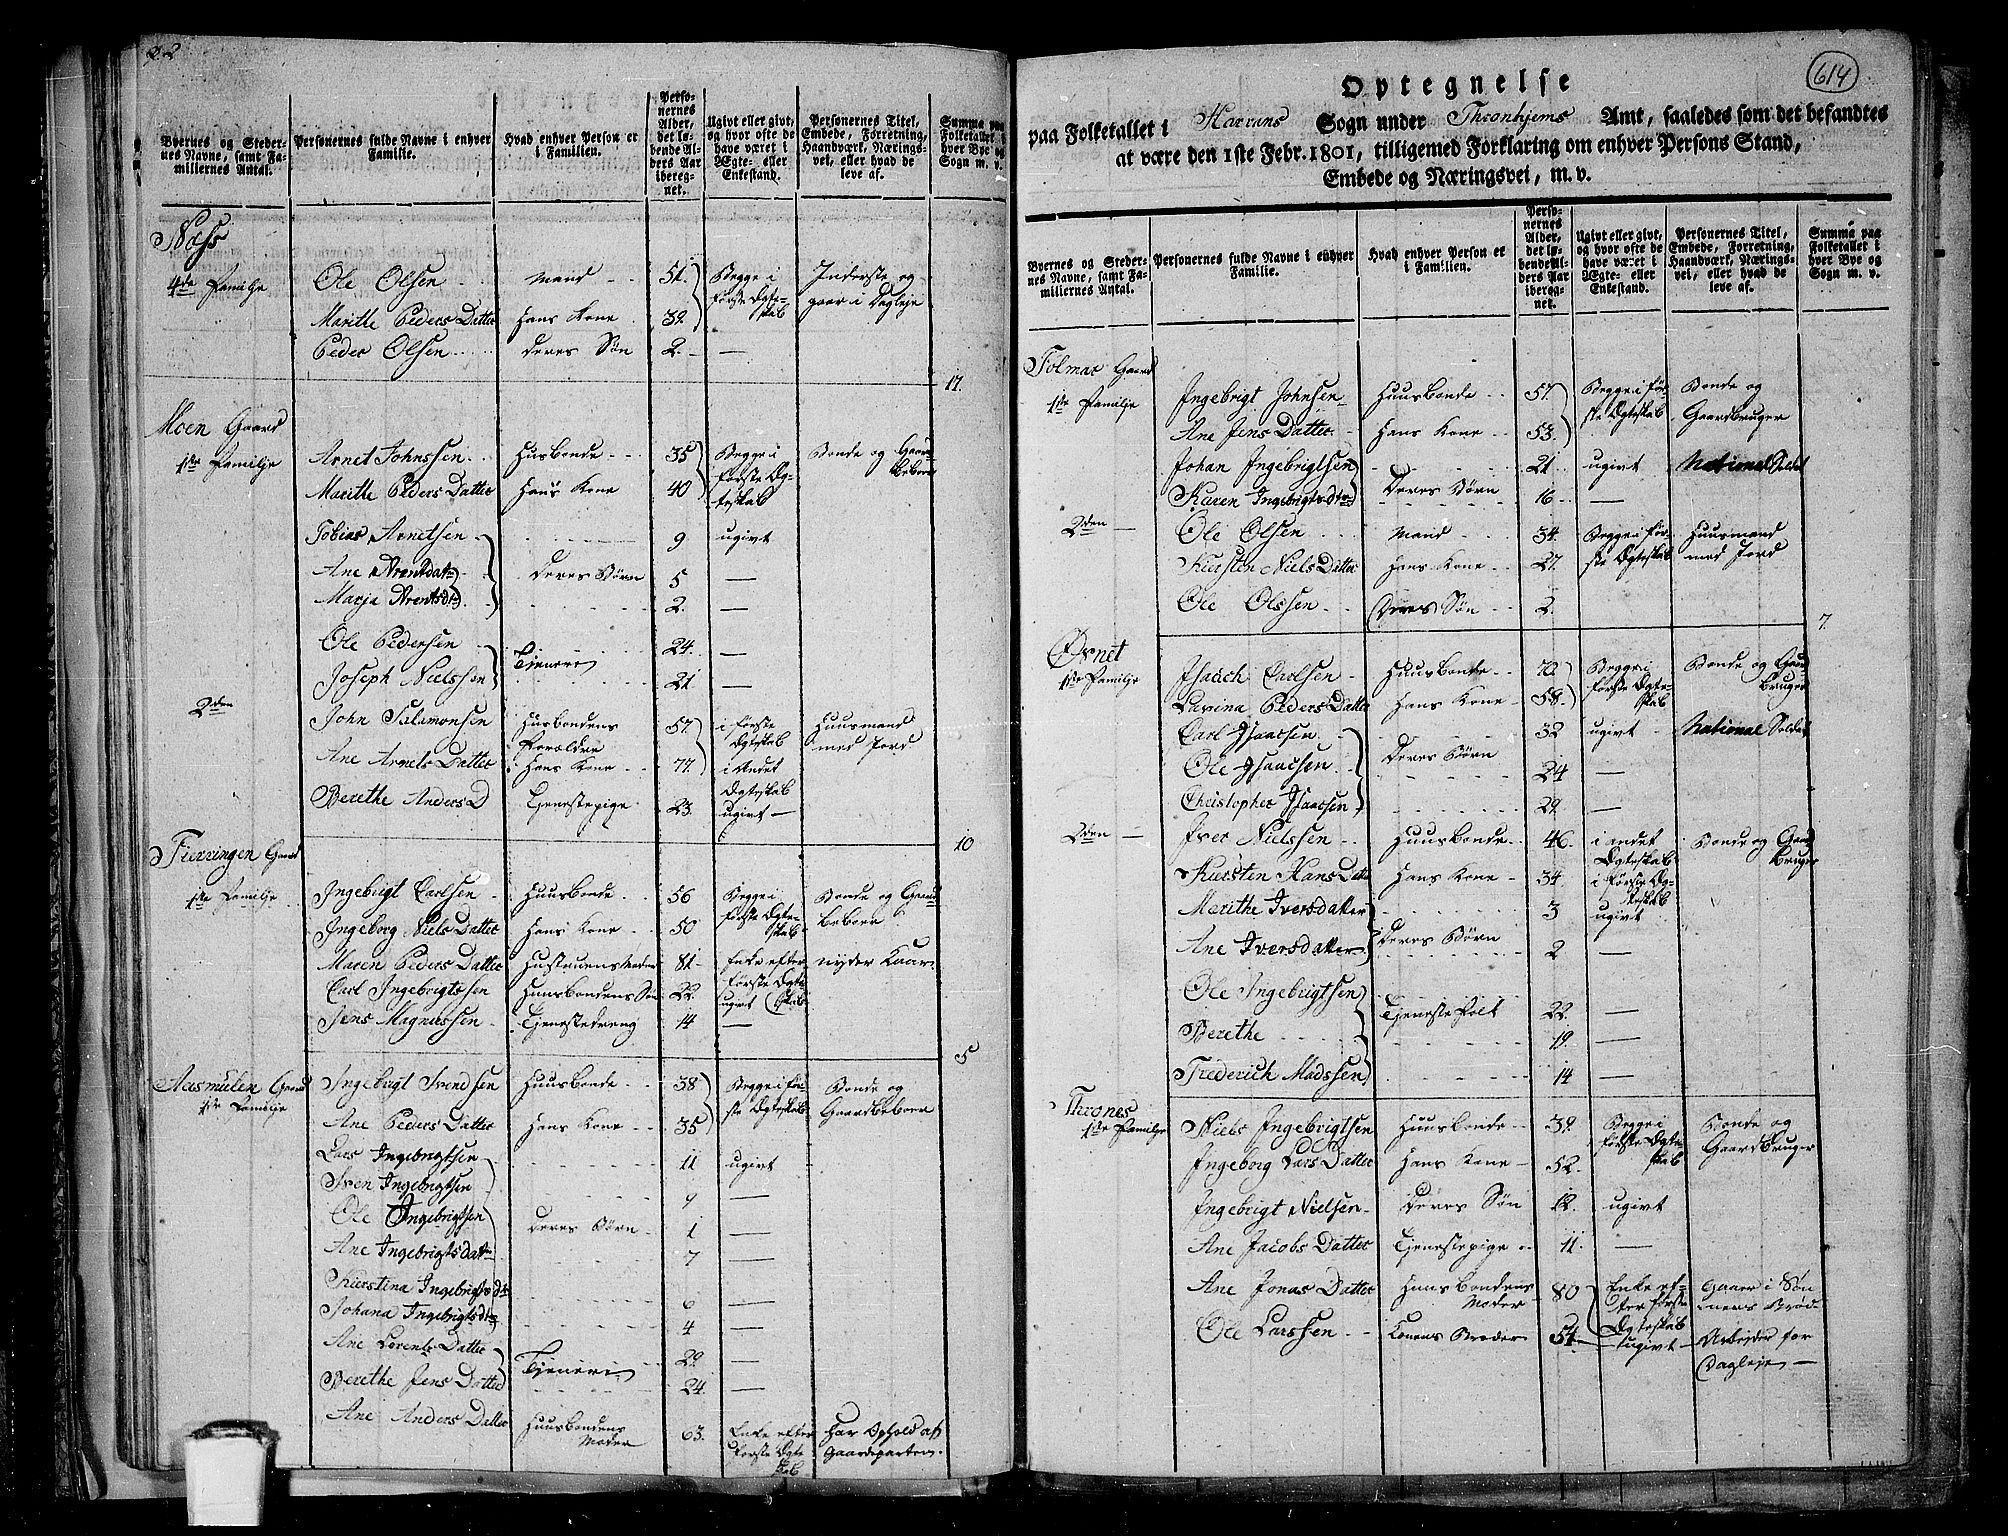 Byernes og Steder-
nes Navne, samt Fa-
millernes Antal.
Personernes fulde Navne i enhver
Familie.
Hvad enhver Person er
i Familien.
Perso-
nernes
Alder,
det lø-
bende Al-
ders Aar
iberegnet.
Ugivt eller givt,
og hvor ofte de
have været i
Ægte- eller
Enkestand.
Personernes Titel,
Embede, Forretning,
Haandværk, Nærings-
vei, eller hvad de
leve af.
Summa paa
Folketallet i
hver Bye og
Sogn m. v.
Næss
4de Familje Ole Olsen Mand 51. Begge i Inderste og
første Ægte- gaar i Dagleje
skab
Marithe Peders Datter Hans Kone 39.
Peder Olsen Deres Søn 2. —
17.
Moen Gaard
1ste Familje Arnet Johnssen Husbonde 35 Begge i Bonde og Gaard
første Æg- beboer
Marithe Peders Datter Hans Kone 40 teskab
Tobias Arnetsen 9 ugivt
Ane Arentdatr Deres Børn 5 —
Marja Arentsdr 2. —
Ole Pedersen 24. —
Tjenere
Joseph Nielssen 21 —
2den John Salamonsen Husbondens 57. i første Huusmand
Forældre Ægteskab med Jord
Ane Arnets Datter Hans Kone 77. i Andet
Ægteskab
Berethe Anders D Tjenestepige 23. ugivt —
10
Fierringen Gaard
1ste Familje Ingebrigt Carlsen Huusbonde 56 Begge i Bonde og Gaard
første Ægte- beboer
Ingeborg Niels Datter Hans Kone 50 skab
Maren Peders Datter Hustruens Moder 81. Enke efter nyder Kaar
første Ægte-
Carl Ingebrigtssen Huusbondens Søn 22. ugivt (skab
Jens Magnussen Tjenestedreng 14 —
5
Aasmulen Gaard Ingebrigt Svendsen Huusbonde 38 Begge i før- Bonde og
1ste Familje ste Ægteskab Gaardbeboer
Ane Peders Datter Hans Kone 35
Lars Ingebrigtsen 11 ugivt
Sven Ingebrigtsen 9 —
Ole Ingebrigtsen Deres Børn 1 —
Ane Ingebrigtsdatr 7 —
Kierstina Ingebrigtsdr 6 —
Johana Ingebrigtsdr 4 —
Ane Lorents Datter 29. —
Tjeneri
Berethe Jens Datter 24. —
Ane Anders Datter Huusbondens 63. Enke efter Har Ophold af
Moder første Ægte Gaardeparten.
skab
614
Optegnelse
paa Folketallet i Harrans Sogn under Thronhjems Amt, saaledes som det befandtes
at være den 1ste Febr. 1801, tilligemed Forklaring om enhver Persons Stand,
Embede og Næringsvei, m. v.
Byernes og Steder-
nes Navne, samt Fa-
miliernes Antal.
Personernes fulde Navne i enhver
Familie.
Hvad enhver Person er
i Familien.
Perso-
nernes
Alder,
det lø-
bende Al-
ders Aar
iberegnet.
Ugivt eller givt,
og hvor ofte de
have været i
Ægte- eller
Enkestand.
Personernes Titel,
Embede, Forretning,
Haandværk, Nærings-
vei, eller hvad de
leve af.
Summa paa
Folketallet i
hver Bye og
Sogn m. v.
Folmar Gaard
1ste Familje Ingebrigt Johnsen Huusbonde 57. Begge i før- Bonde og
ste Ægteskab Gaardbruger
Ane Jens Datter Hans Kone 53.
Johan Ingebrigtsen 21 ugivt National Soldat
Deres Børn
Karen Ingebrigtsdtr 16 —
2den — Ole Olsen Mand 34. Begge i før- Huusmand
ste Ægteskab med Jord
Kiersten Niels Datter Hans Kone 27.
Ole Olssen Deres Søn 2.
7.
Øsnet
1ste Familje Isaach Carlsen Huusbonde 72 Begge i Bonde og Gaard
første Ægte- bruger
Lavrina Peders Datter Hans Kone 58. skab
Carl Isaacsen 32 ugivt National Soldat
Deres Børn
Ole Isaacsen 24 —
Christopher Isaacsen 29. —
2den — Iver Nielssen Huusbonde 46. i andet Bonde og Gaard
Ægteskab bruger
Kiersten Hans Datter Hans Kone 34. i første Æg-
teskab
Marithe Iversdatter 3 ugivt
Deres Børn
Ane Iversdatter 2 —
Ole Ingebrigtsen 22. —
Tjeneste Folk
Berethe 19. —
Frederich Madssen 14 —
Thrones
1ste Familje Niels Ingebrigtsen Huusbonde 39. Begge i Bonde og
første Ægte- Gaardbruger
Ingeborg Lars Datter Hans Kone 52. skab
Ingebrigt Nielsen Deres Søn 12. ugivt
Ane Jacobs Datter Tjenestepige 11. —
Ane Jonas Datter Huusbondens 80 Enke ef- gaaer i Søn
Moder ter første nens Brød.
Ægteskab
Ole Larssen Konens Broder 54. ugivt — Arbejder for
Dagleje —